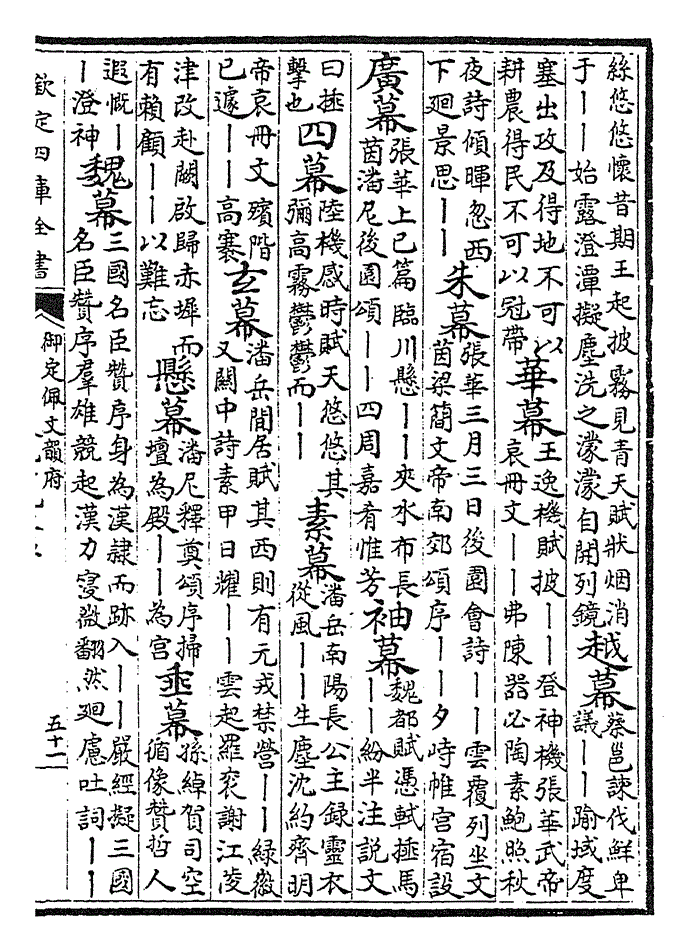 絲悠悠懷昔期王起披霧見青天賦狀烟消
于丨丨始露澄潭擬塵洗之濛濛自開列鏡
越幕
蔡邕諫伐鮮卑
議丨丨踰域度
塞出攻及得地不可以
耕農得民不可以冠帶
華幕
王逸機賦披丨丨登神機張華武帝
哀冊文丨丨弗陳器必陶素鮑照秋
夜詩傾暉忽西
下廻景思丨丨
朱幕
張華三月三日後園會詩丨丨雲覆列坐文
茵梁簡文帝南郊頌序丨丨夕峙帷宮宿設
廣幕
張華上巳篇臨川懸丨丨夾水布長
茵潘尼後園頌丨丨四周嘉肴惟芳
袖幕
魏都賦憑軾捶馬
丨丨紛半注説文
曰捶
擊也
四幕
陸機感時賦天悠悠其
彌高霧鬱鬱而丨丨
素幕
潘岳南陽長公主錄靈衣
從風丨丨生塵沈約齊明
帝哀冊文殯階
已遽丨丨高褰
玄幕
潘岳閒居賦其西則有元戎禁營丨丨綠徽
又關中詩素甲日耀丨丨雲起羅衮謝江淩
津改赴闕啟歸赤墀而
有賴顧丨丨以難忘
懸幕
潘尼釋奠頌序掃
壇為殿丨丨為宮
垂幕
孫綽賀司空
循像贊哲人
遐慨丨
丨澄神
魏幕
三國名臣贊序身為漢隸而跡入丨丨嚴經擬三國
名臣贊序羣雄競起漢力寖微翻然廻慮吐詞丨丨
欽定四庫全書
御定佩文韻府
五十一